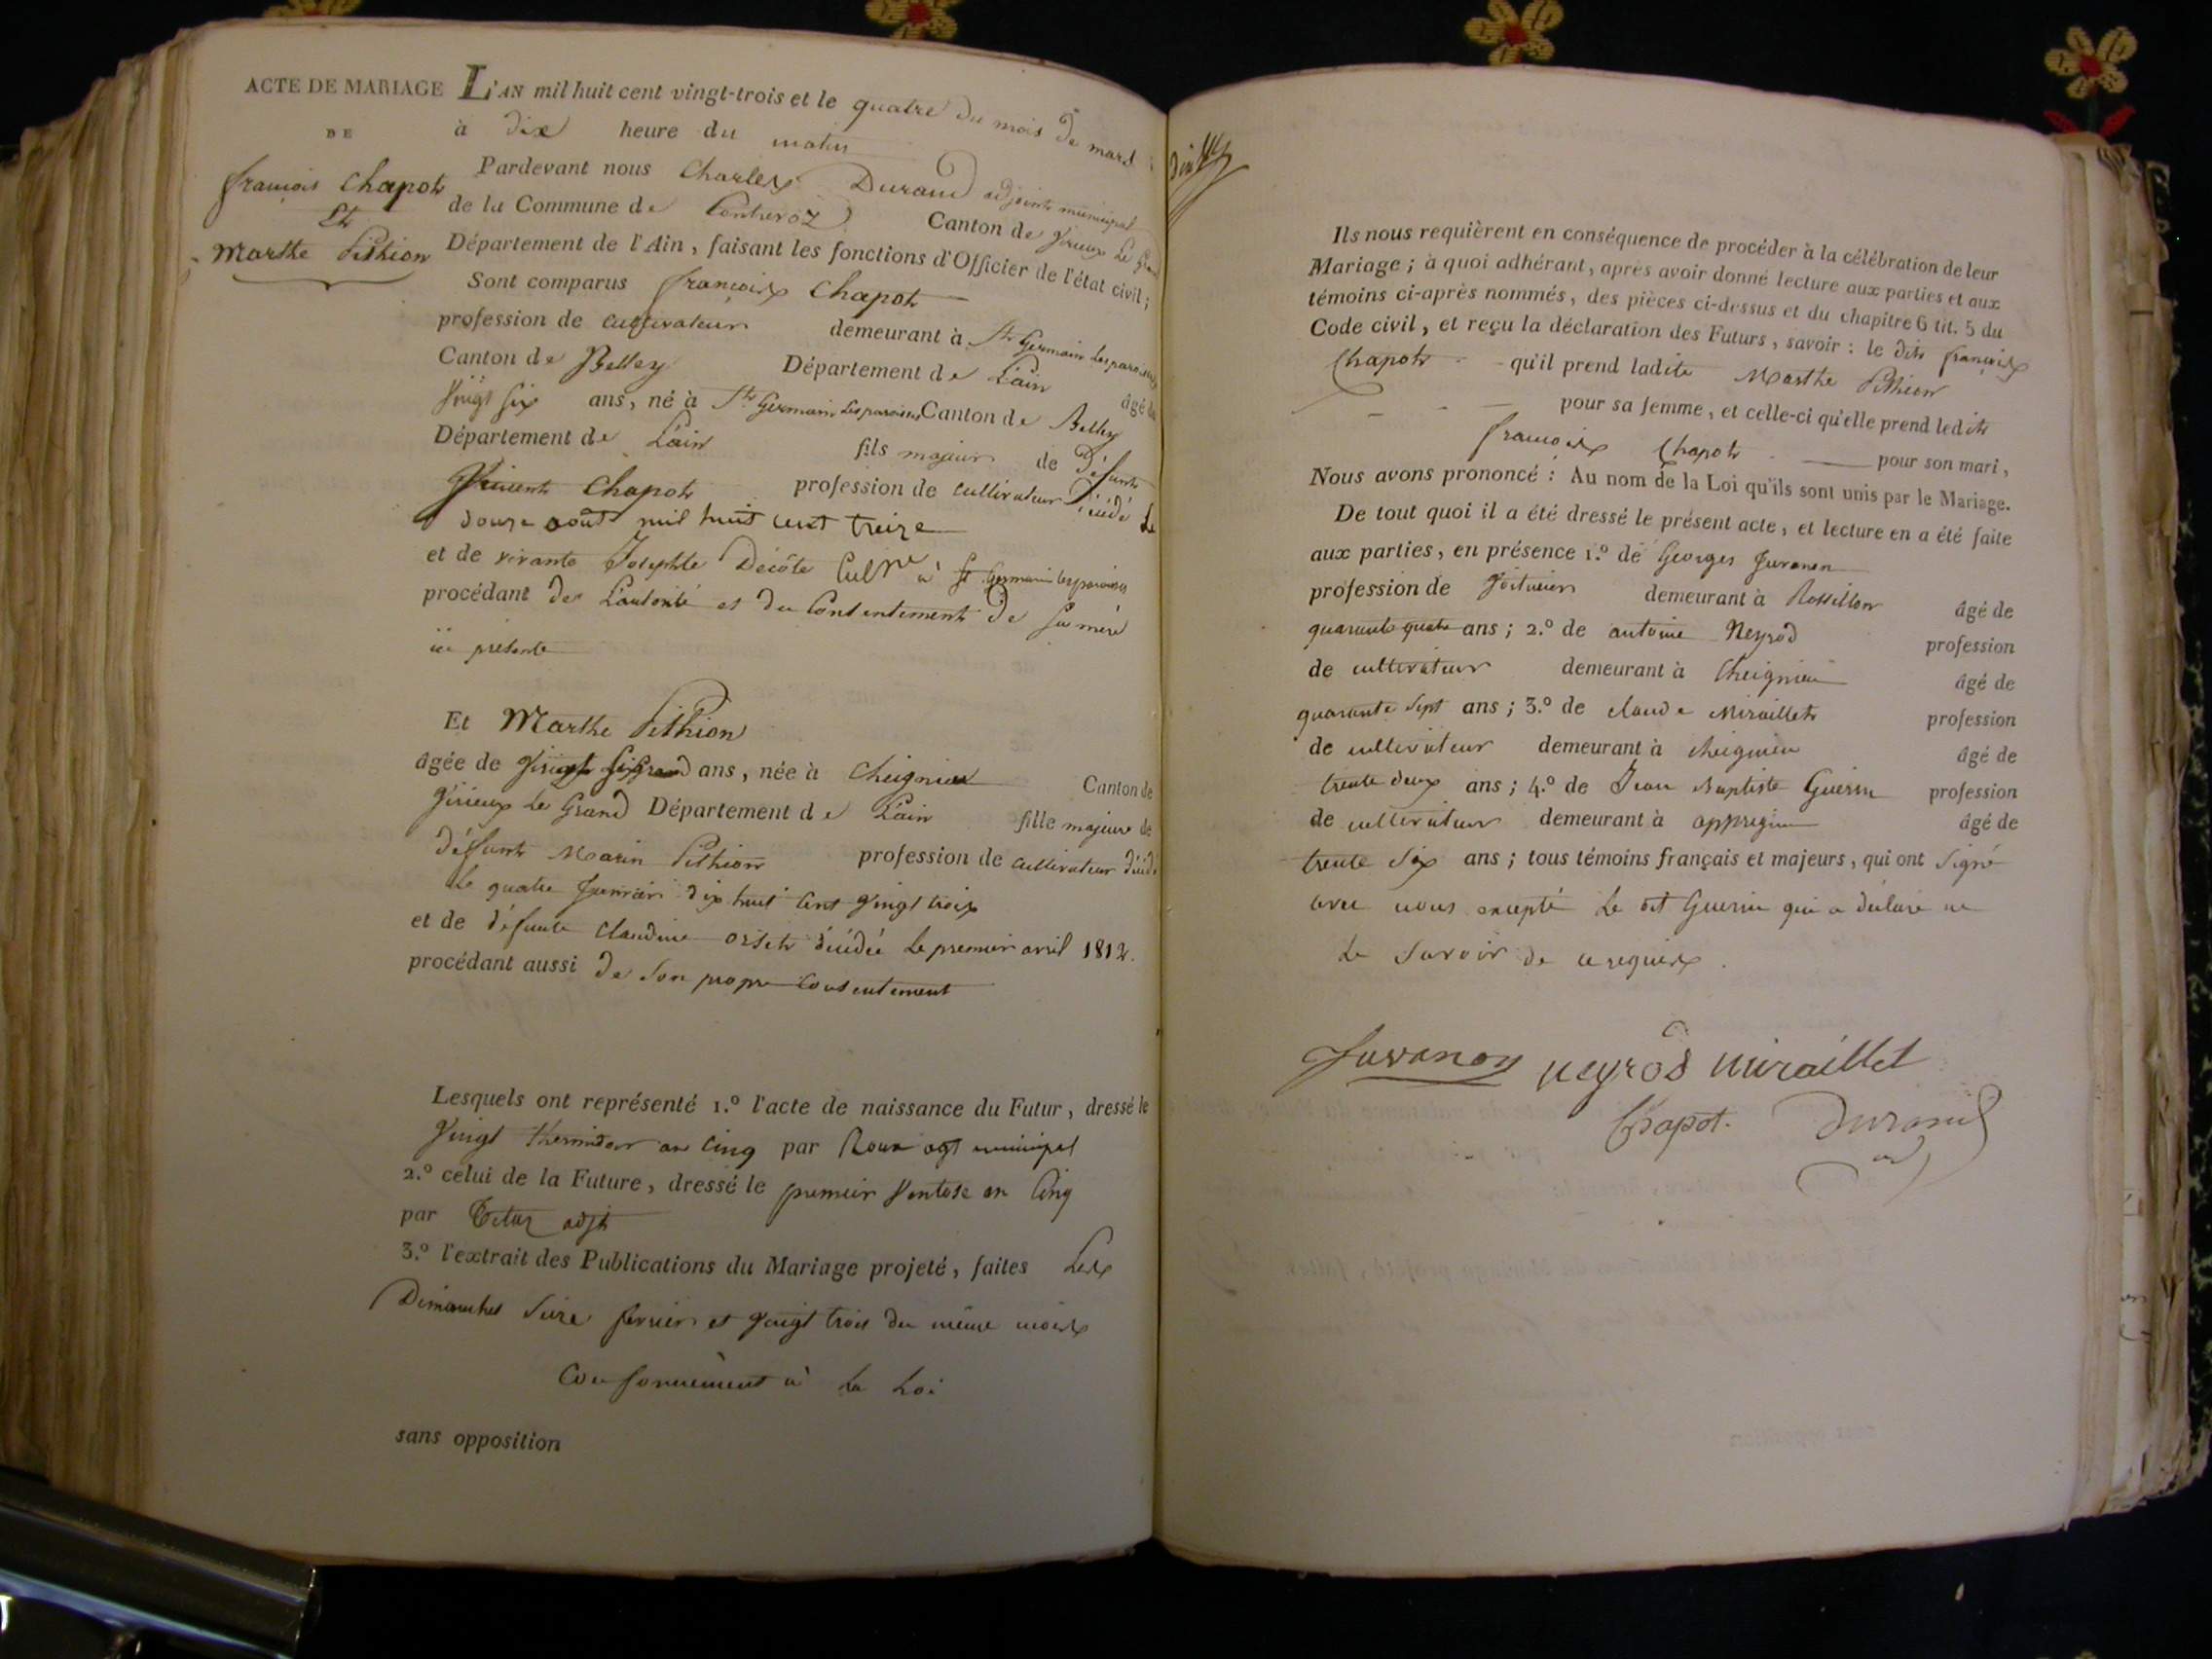 ACTE DE MARIAGE
DE
françois Chapot
Et
Marthe Pithion
L'AN mil huit cent vingt-trois et le quatre du mois de mars
à dix heure du matin
Pardevant nous Charles Durand adjoint municipal
de la Commune de Contrevoz Canton de Virieux Le Grand
Département de l'Ain, faisant les fonctions d'Officier de l'état civil;
Sont comparus françois Chapot
profession de cultivateur demeurant à St Germain Les paroisses
Canton de Belley Département de L'ain âgé de
Vingt six ans, né à St Germain Les paroisses Canton de Belley
Département de L'ain fils majeur de Défunt
Vincent Chapot profession de cultivateur Décédé Le
douze août mil huit cent treize
et de vivante Josephte Décôte Cultre à St Germain les paroisses
procédant de L'autorité et du Consentement de Sa mère
ici présente
Et Marthe Pithion
âgée de Vingt six ans, née à Cheignieu Canton de
Virieux Le Grand Département de L'ain fille majeure de
défunt Marin Pithion profession de cultivateur décédé
Le quatre Janvier dix huit cent Vingt trois
et de défunte Claudine décédée Le premier avril 1812.
procédant aussi de Son propre consentement
Lesquels ont représenté 1.º l'acte de naissance du Futur, dressé le
Vingt thermidor an Cinq par Roux agt municipal
2.º celui de la Future, dressé le premier Ventose an Cinq
par adjt
3.º l'extrait des Publications du Mariage projeté, faites Les
Dimanches Seize fevrier et Vingt trois du même mois
Conformément à La Loi
sans opposition
Ils nous requièrent en conséquence de procéder à la célébration de leur
Mariage; à quoi adhérant, après avoir donné lecture aux parties et aux
témoins ci-après nommés, des pièces ci-dessus et du chapitre 6 tit. 5 du
Code civil, et reçu la déclaration des Futurs, savoir: le dit françois
Chapot qu'il prend ladite Marthe Pithion
pour sa femme, et celle-ci qu'elle prend ledit
françois Chapot pour son mari,
Nous avons prononcé: Au nom de la Loi qu'ils sont unis par le Mariage.
De tout quoi il a été dressé le présent acte, et lecture en a été faite
aux parties, en présence 1.º de Georges Juvanon
profession de Voiturier demeurant à Rossillon âgé de
quarante quatre ans; 2.º de antoine Neyrod profession
de cultivateur demeurant à Cheignieu âgé de
quarante Sept ans; 3.º de claude Miraillet profession
de cultivateur demeurant à cheignieu âgé de
trente deux ans; 4.º de Jean Baptiste Guerin profession
de cultivateur demeurant à appregnin âgé de
trente Six ans; tous témoins français et majeurs, qui ont Signé
avec nous excepté Le dit Guerin qui a déclaré ne
Le Savoir de ce requis.
Juvanon neyrod miraillet
Chapot. Durand